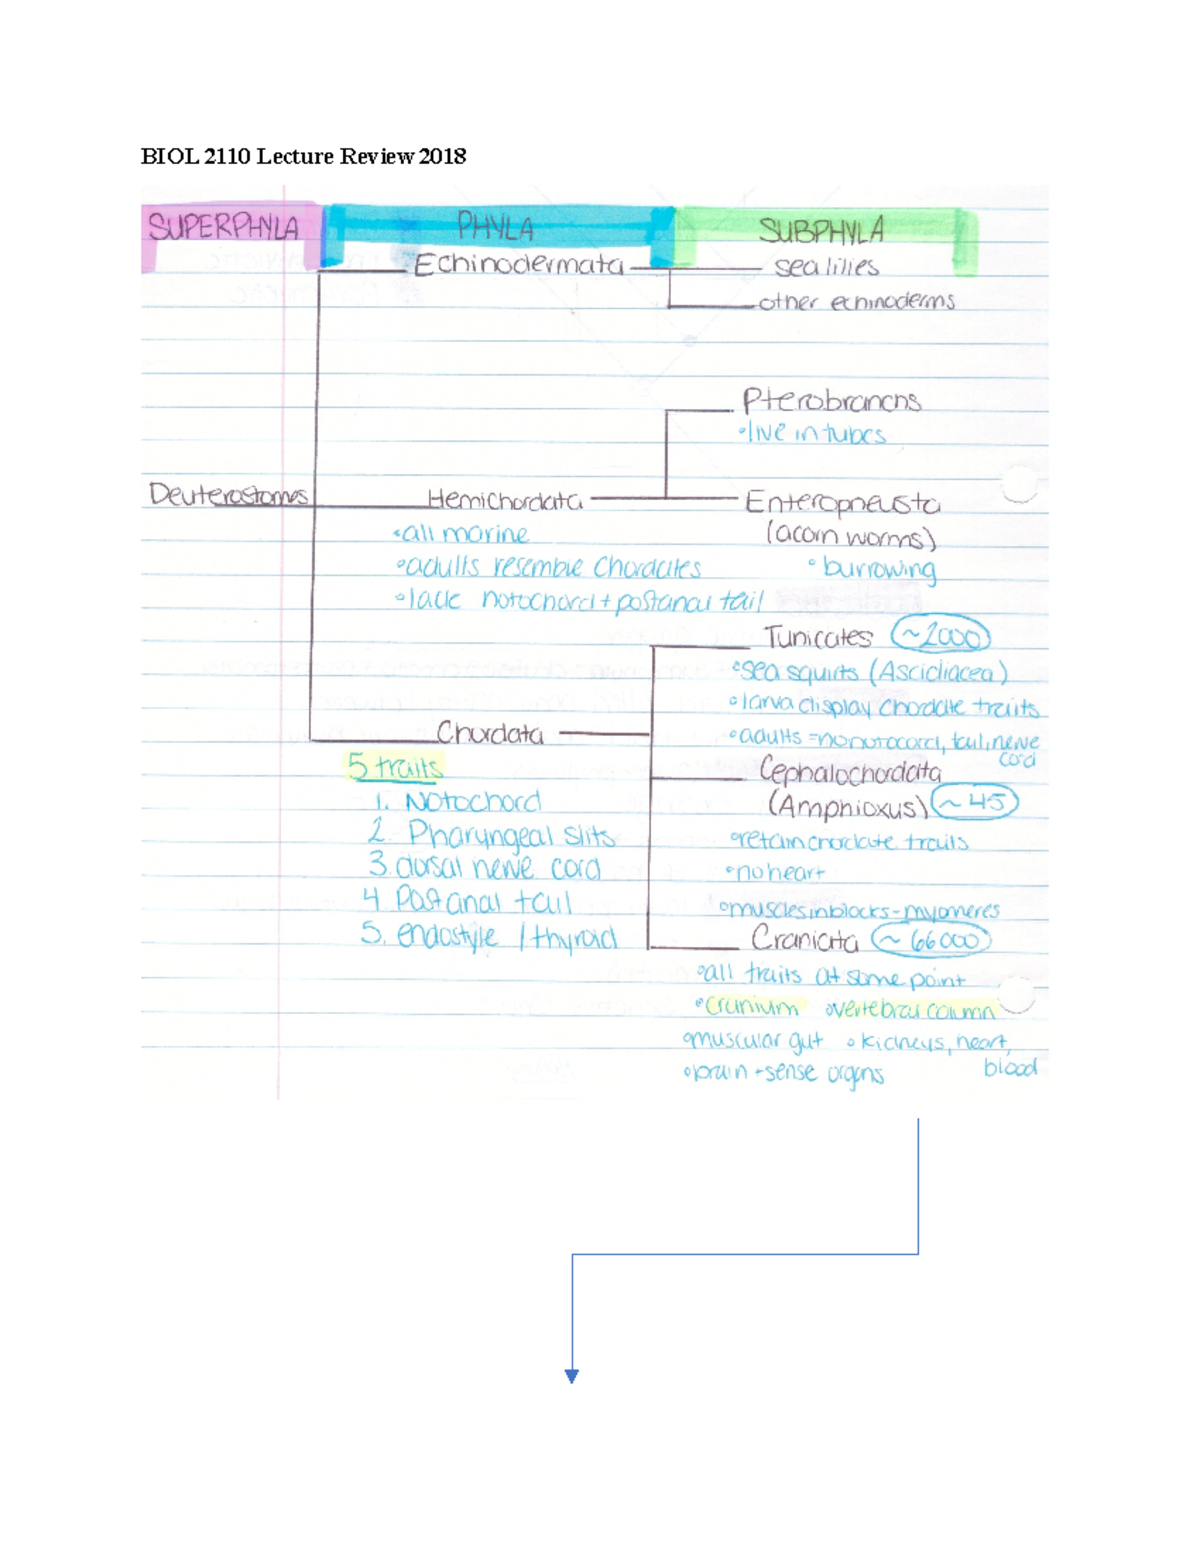 BIOL 2110 Lecture Review 2018
SUPERPHYLA PHYLA SUBPHYLA
Echinodermata sea lilies
other echinoderms
Pterobranchs
•live in tubes
Deuterostomes Hemichordata Enteropneusta
•all marine (acorn worms)
•adults resemble Chordates •burrowing
•lack notochord + postanal tail
Tunicates ~2000
•sea squirts (Ascidiacea)
•larva display chordate traits
Chordata •adults = no notocord, tail, nerve
cord
5 traits Cephalochordata
1. Notochord (Amphioxus) ~45
2. Pharyngeal slits •retain chordate traits
3. dorsal nerve cord •no heart
4 Postanal tail •muscles in blocks - myomeres
5. endostyle / thyroid Craniata ~66000
•all traits at some point
•cranium •vertebral column
•muscular gut •kidneys, heart,
blood
•brain + sense organs